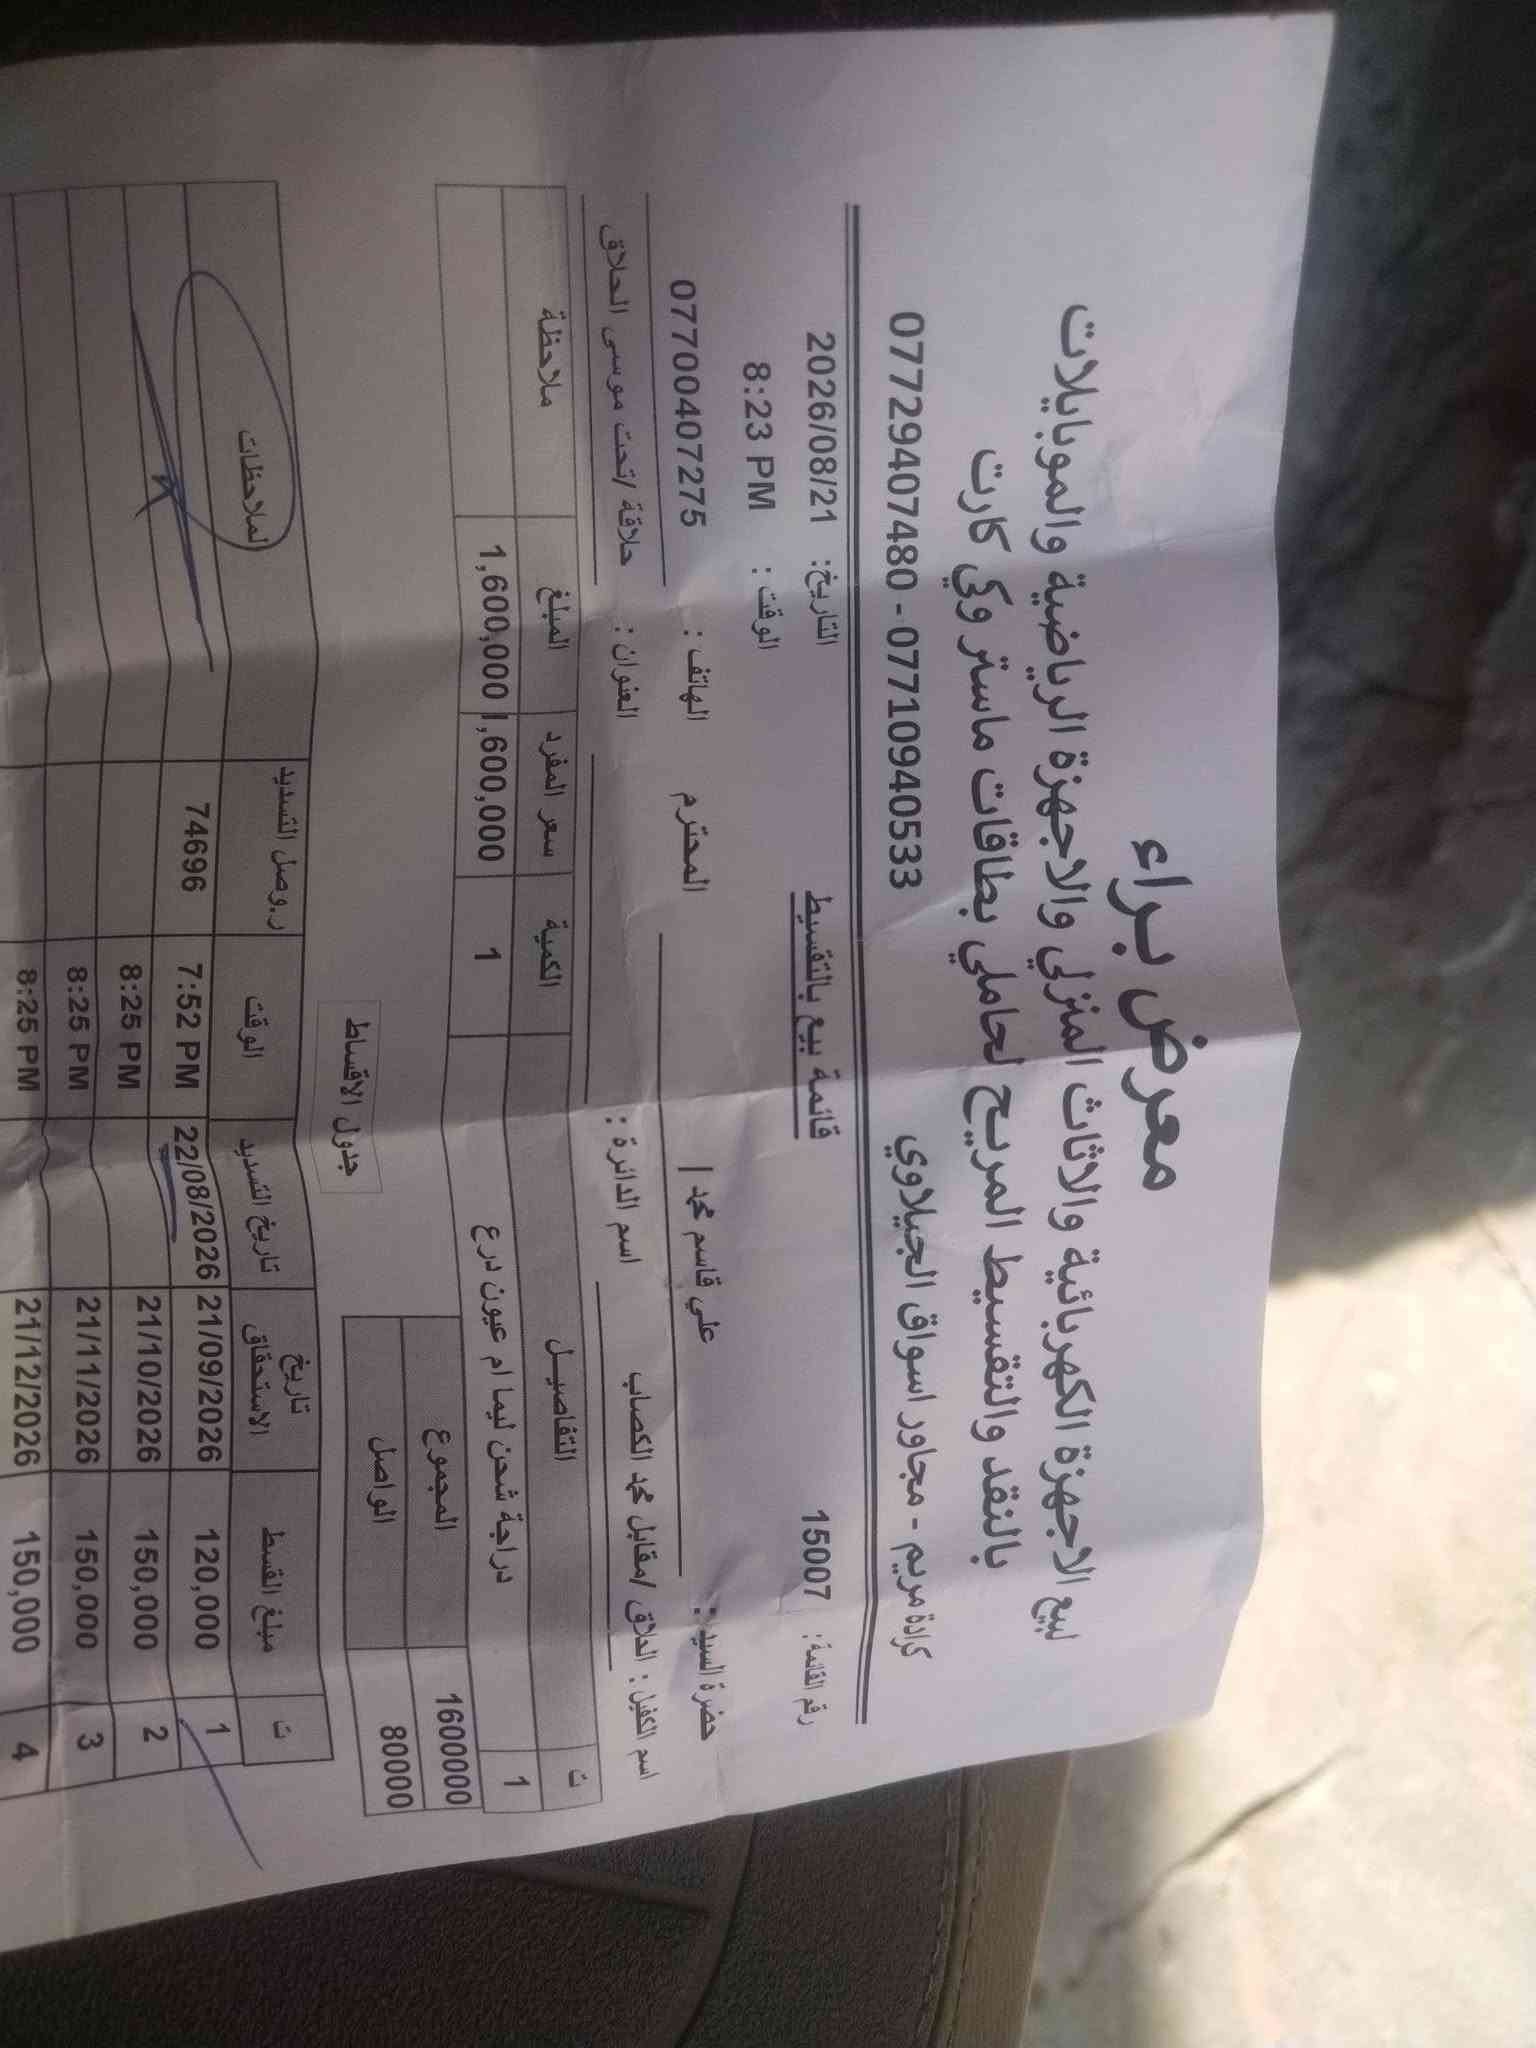 معرض براء
لبيع الاجهزة الكهربائية والاثاث المنزلي والاجهزة الرياضية والموبايلات
بالنقد والتقسيط المريح لحاملي بطاقات ماستر وكي كارت
كرادة مريم - مجاور اسواق الجيلاوي 07710940533 - 07729407480
رقم القائمة: 15007 قائمة بيع بالتقسيط التاريخ: 2026/08/21
الوقت : 8:23 PM
حضرة السيد: علي قاسم محمد / المحترم الهاتف : 07700407275
اسم الكفيل : الحلاق /مقابل محمد الكصاب اسم الدائرة : العنوان : حلاقة /تحت موسى الحلاق
ت التفاصيل الكمية سعر المفرد المبلغ ملاحظة
1 دراجة شحن ليما ام عيون درع 1 1,600,000 1,600,000
المجموع 1600000
الواصل 80000
جدول الاقساط
ت مبلغ القسط تاريخ الاستحقاق تاريخ التسديد الوقت ر.وصل التسديد الملاحظات
1 120,000 21/09/2026 22/08/2026 7:52 PM 74696
2 150,000 21/10/2026 8:25 PM
3 150,000 21/11/2026 8:25 PM
4 150,000 21/12/2026 8:25 PM